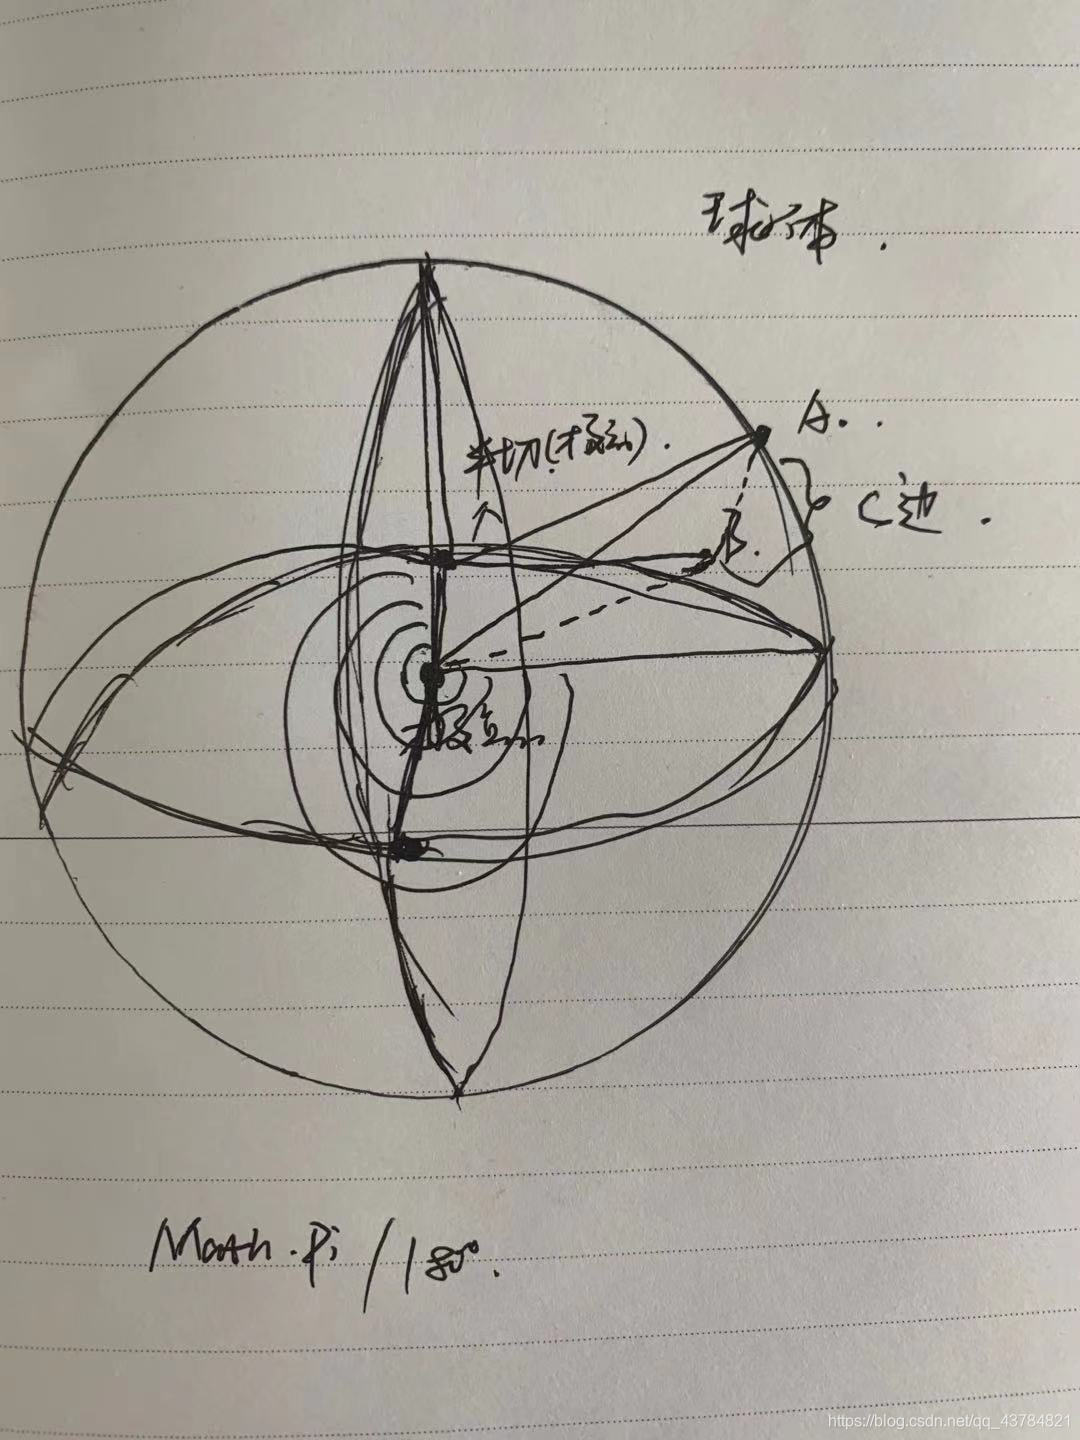 球体.
A..
半切(极点).
C边.
B.
极点
Math.Pi/180°.
https://blog.csdn.net/qq_43784821